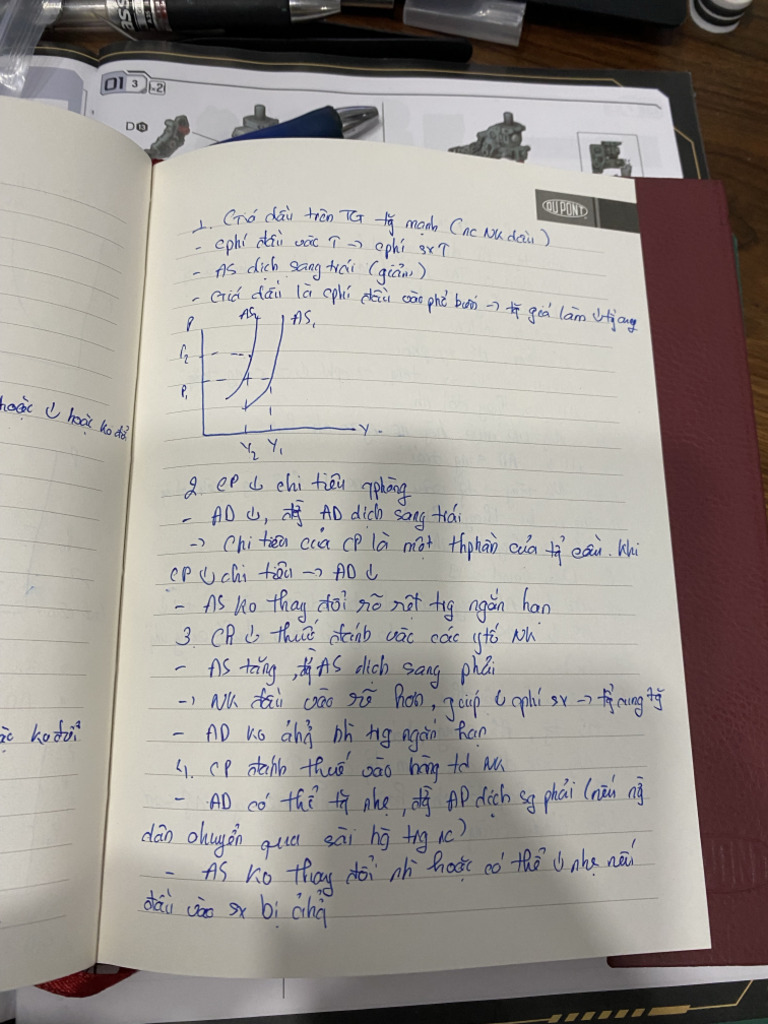 01 3 x2
D 13
DUPONT
1. Giá dầu trên TG tg̃ mạnh (nc NK dầu)
- cphí đầu vào ↑ → cphí sx ↑
- AS dịch sang trái (giảm)
- Giá dầu là cphí đầu vào phổ biến → tg̃ giá làm ↓ tg̉ cung
P AS2 AS1
P2
P1
Y
Y2 Y1
2. CP ↓ chi tiêu qphòng
- AD ↓, đg̀ AD dịch sang trái
→ Chi tiêu của CP là một thphần của tg̉ cầu. Khi
CP ↓ chi tiêu → AD ↓
- AS ko thay đổi rõ rệt trg ngắn hạn
3. CP ↓ thuế đánh vào các ytố NK
- AS tăng, đg̀ AS dịch sang phải
→ NK đầu vào rẻ hơn, giúp ↓ cphí sx → tg̉ cung tg̃
- AD ko ảhg̉ nh` trg ngắn hạn
4. CP đánh thuế vào hàng td NK
- AD có thể tg̃ nhẹ, đg̀ AD dịch sg phải (nếu ng`
dân chuyển qua xài hg̀ trg nc)
- AS ko thay đổi nh` hoặc có thể ↓ nhẹ nếu
đầu vào sx bị ảhg̉
hoặc ↓ hoặc ko đổi
ko đổi